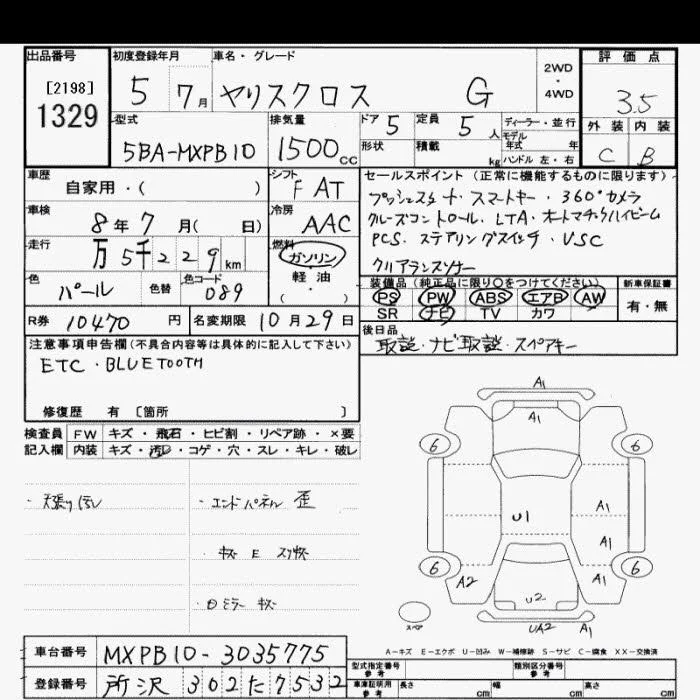 出品番号 初度登録年月 車名・グレード 評価点
[2198]
1329
5 7月 ヤリスクロス G
2WD
・
4WD
3.5
外装 内装
C B
型式 排気量 ドア 定員 ディーラー・並行
5BA-MXPB10 1500cc 5 5人
モデル
年式 年
形状 積載 kg ハンドル 左・右
車歴 シフト セールスポイント(正常に機能するものに限ります)
自家用・( ) FAT
プッシュスタート・スマートキー・360°カメラ
車検 冷房
8年7月( 日) AAC
クルーズコントロール・LTA・オートマチックハイビーム
PCS・ステアリングスイッチ・VSC
クリアランスソナー
走行 燃料
万5千229km ガソリン
・
軽・油
・
( )
色 色替 色コード
パール 089
装備品(純正品に限り○をつけてください) 新車保証書
PS PW ABS エアB AW 有・無
SR ナビ TV カワ
R券 10470円 名変期限 10月29日
後日品
取説・ナビ取説・スペアキー
注意事項申告欄(不具合内容等は具体的に記入して下さい)
ETC・BLUETOOTH
修復歴 有 [箇所 ]
検査員 FW キズ・飛石・ヒビ割・リペア跡・×要
記入欄 内装 キズ・汚レ・コゲ・穴・スレ・キレ・破レ
・エンドパネル 歪
・キズ E スリキズ
ミラー キズ
A1
A1
6 6
A1
U1
A1
6 6
A2 A1
U2
UA2 A1
スペア
A-キズ E-エクボ U-凹み W-補修跡 S-サビ C-腐食 XX-交換済
車台番号 MXPB10-3035775
登録番号 所沢 302 た 7532
型式指定番号
参考
類別区分番号
参考
車庫証明用
参考
長さ cm 幅 cm 高さ cm